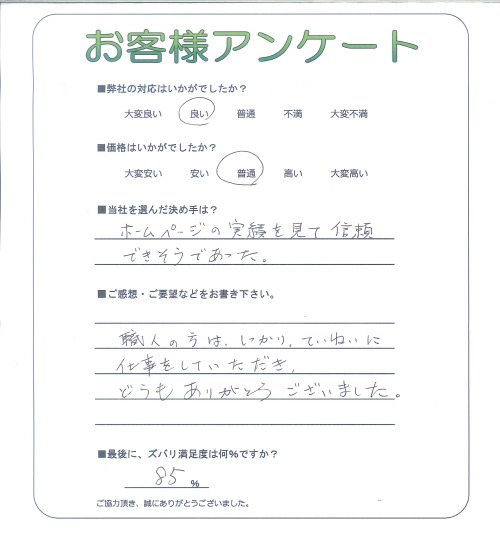 お客様アンケート
■弊社の対応はいかがでしたか？
大変良い 良い 普通 不満 大変不満
■価格はいかがでしたか？
大変安い 安い 普通 高い 大変高い
■当社を選んだ決め手は？
ホームページの実績を見て信頼
できそうであった。
■ご感想・ご要望などをお書き下さい。
職人の方は、しっかり、ていねいに
仕事をしていただき、
どうもありがとうございました。
■最後に、ズバリ満足度は何%ですか？
85 %
ご協力頂き、誠にありがとうございました。